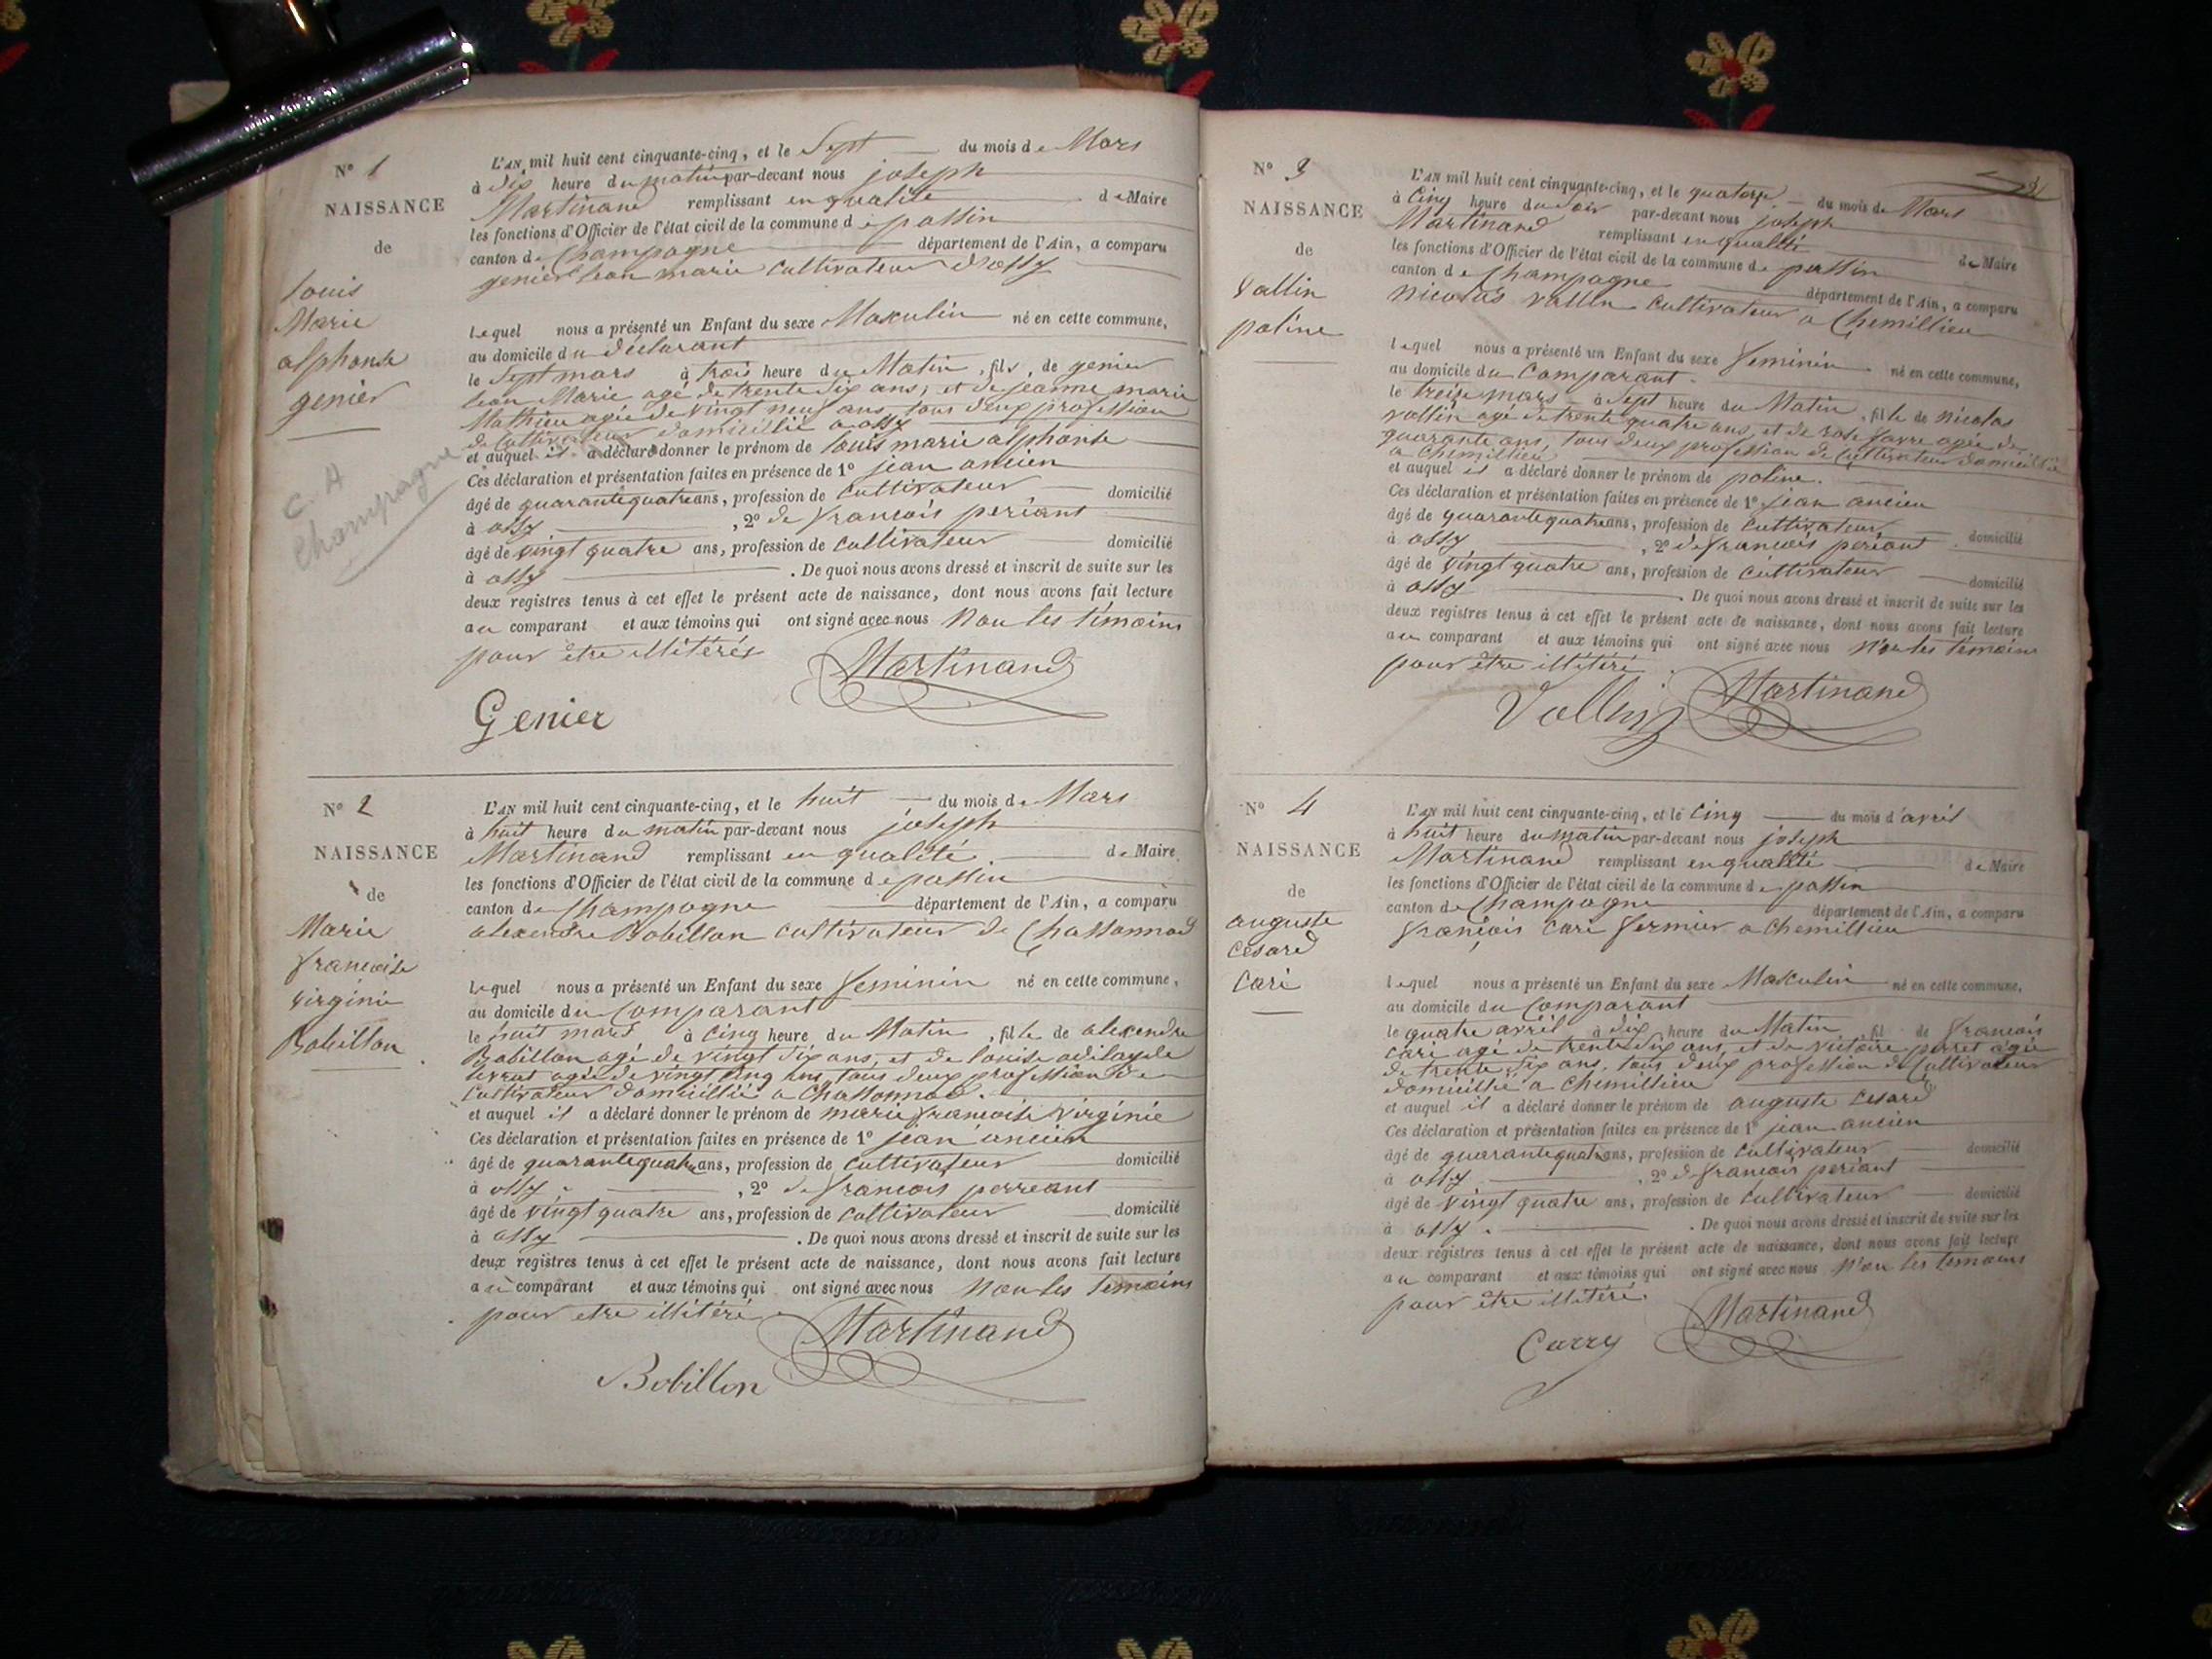 N° 1
NAISSANCE
de
Louis
Marie
alphonse
genier
C. A
Champagne
L'AN mil huit cent cinquante-cinq, et le Sept du mois de Mars
à dix heure du matin par-devant nous joseph
Martinand remplissant en qualité de Maire
les fonctions d'Officier de l'état civil de la commune de passin
canton de Champagne département de l'Ain, a comparu
genier jean marie cultivateur d'ossy
lequel nous a présenté un Enfant du sexe Masculin né en cette commune,
au domicile du déclarant
le Sept mars à trois heure du Matin, fils, de genier
jean Marie agé de trente six ans, et de jeanne marie
Mathieu agée de vingt neuf ans, tous deux profession
de Cultivateur domicilié a ossy
et auquel il a déclaré donner le prénom de louis marie alphonse
Ces déclaration et présentation faites en présence de 1° jean ancien
âgé de quarante quatre ans, profession de Cultivateur domicilié
à ossy, 2° de francois periant
âgé de vingt quatre ans, profession de Cultivateur domicilié
à ossy. De quoi nous avons dressé et inscrit de suite sur les
deux registres tenus à cet effet le présent acte de naissance, dont nous avons fait lecture
au comparant et aux témoins qui ont signé avec nous Non les témoins
pour être illitérés
Martinand
Genier
N° 2
NAISSANCE
de
Marie
francoise
virginie
Bobillon
L'AN mil huit cent cinquante-cinq, et le huit du mois de Mars
à huit heure du matin par-devant nous joseph
Martinand remplissant en qualité de Maire
les fonctions d'Officier de l'état civil de la commune de passin
canton de Champagne département de l'Ain, a comparu
alexendre Bobillon cultivateur de Chassonnod
lequel nous a présenté un Enfant du sexe feminin né en cette commune,
au domicile du Comparant
le huit mars à Cinq heure du Matin, fille de alexendre
Bobillon agé de vingt six ans, et de louise
agée de vingt cinq ans, tous deux profession de
Cultivateur domicillié a Chassonnod.
et auquel il a déclaré donner le prénom de marie francoise virginie
Ces déclaration et présentation faites en présence de 1° jean ancien
âgé de quarante quatre ans, profession de Cultivateur domicilié
à ossy, 2° de francois perreant
âgé de vingt quatre ans, profession de Cultivateur domicilié
à ossy. De quoi nous avons dressé et inscrit de suite sur les
deux registres tenus à cet effet le présent acte de naissance, dont nous avons fait lecture
au comparant et aux témoins qui ont signé avec nous Non les temoins
pour etre illitéré.
Martinand
Bobillon
N° 3
NAISSANCE
de
Vallin
poline
L'AN mil huit cent cinquante-cinq, et le quatorze du mois de Mars
à Cinq heure du soir par-devant nous joseph
Martinand remplissant en qualité de Maire
les fonctions d'Officier de l'état civil de la commune de passin
canton de Champagne département de l'Ain, a comparu
nicolas vallin Cultivateur a Chemillieu
lequel nous a présenté un Enfant du sexe feminin né en cette commune,
au domicile du Comparant.
le treize mars à Sept heure du Matin, fille de nicolas
vallin agé de trente quatre ans, et de rose favre agée de
quarante ans, tous deux profession de Cultivateur domicillié
a Chemillieu
et auquel il a déclaré donner le prénom de poline.
Ces déclaration et présentation faites en présence de 1° jean ancien
âgé de quarante quatre ans, profession de Cultivateur domicilié
à ossy, 2° de francois periant
âgé de vingt quatre ans, profession de Cultivateur domicilié
à ossy. De quoi nous avons dressé et inscrit de suite sur les
deux registres tenus à cet effet le présent acte de naissance, dont nous avons fait lecture
au comparant et aux témoins qui ont signé avec nous Non les témoins
pour être illitéré.
Vallin Martinand
N° 4
NAISSANCE
de
auguste
Césard
Cari
L'AN mil huit cent cinquante-cinq, et le Cinq du mois d'avril
à huit heure du matin par-devant nous joseph
Martinand remplissant en qualité de Maire
les fonctions d'Officier de l'état civil de la commune de passin
canton de Champagne département de l'Ain, a comparu
françois Cari fermier a Chemillieu
lequel nous a présenté un Enfant du sexe Masculin né en cette commune,
au domicile du Comparant
le quatre avril à dix heure du Matin, fil de francois
Cari agé de trente six ans, et de Victoire perret agée
de trente six ans, tous deux profession de Cultivateur
domicillié a Chemillieu
et auquel il a déclaré donner le prénom de auguste césard
Ces déclaration et présentation faites en présence de 1° jean ancien
âgé de quarante quatre ans, profession de Cultivateur domicilié
à ossy, 2° de francois periant
âgé de vingt quatre ans, profession de Cultivateur domicilié
à ossy. De quoi nous avons dressé et inscrit de suite sur les
deux registres tenus à cet effet le présent acte de naissance, dont nous avons fait lecture
au comparant et aux témoins qui ont signé avec nous Non les temoins
pour être illitéré.
Martinand
Carry